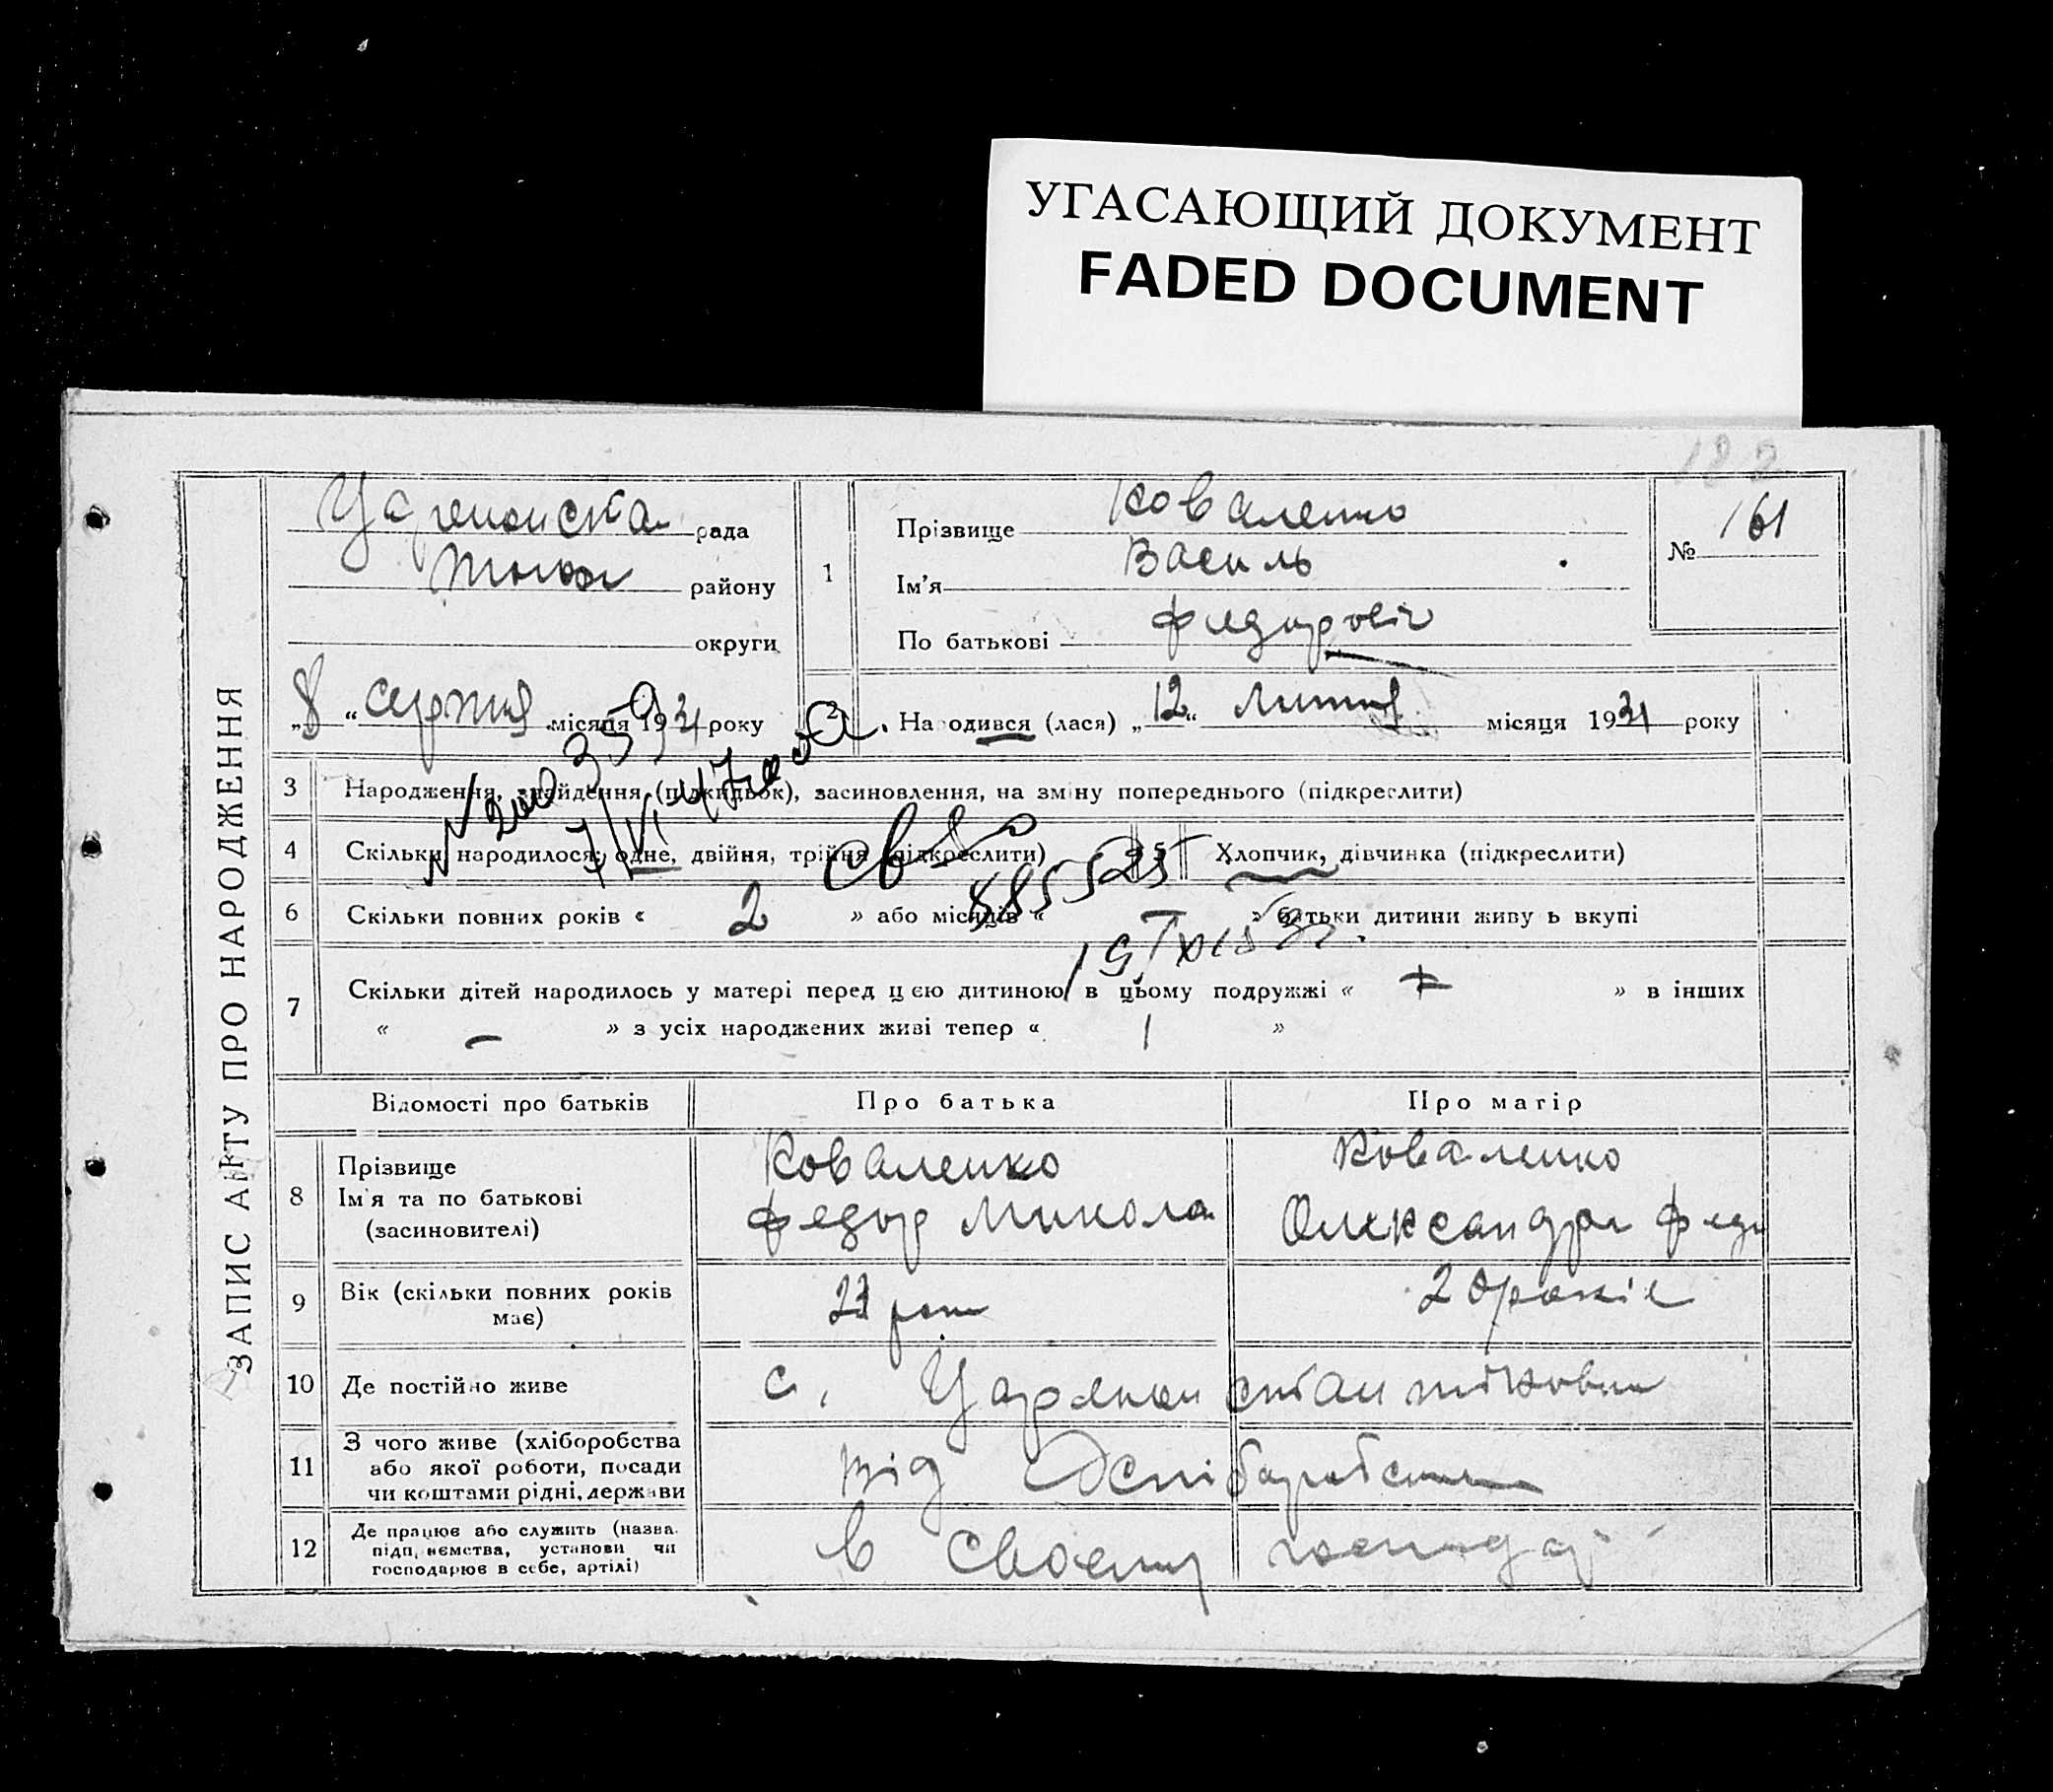 УГАСАЮЩИЙ ДОКУМЕНТ
FADED DOCUMENT
122
ЗАПИС АКТУ ПРО НАРОДЖЕННЯ
рада
району
округи
„8“ серпня місяця 1931 року
1
Прізвище Коваленко
Ім'я Василь
По батькові Федорович
№ 161
2
Народився (лася) „12“ місяця 1931 року
3 Народження, знайдення (підкидьок), засиновлення, на зміну попереднього (підкреслити)
4 Скільки народилося: одне, двійня, трійня (підкреслити) 5 Хлопчик, дівчинка (підкреслити)
885525
6 Скільки повних років « 2 » або місяців « » батьки дитини живуть вкупі
7 Скільки дітей народилось у матері перед цією дитиною в цьому подружжі « » в інших
« – » з усіх народжених живі тепер « 1 »
Відомості про батьків Про батька Про матір
8 Прізвище Коваленко Коваленко
Ім'я та по батькові Федор Микола Олександра Федо
(засиновителі)
9 Вік (скільки повних років має) 20 років
10 Де постійно живе с.
11 З чого живе (хліборобства або якої роботи, посади чи коштами рідні, держави від
12 Де працює або служить (назва підприємства, установи чи господарює в себе, артілі) в своему